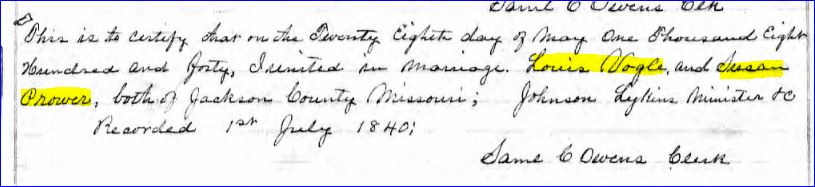 Saml C Owens Clk
This is to certify that on the Twenty Eighth day of May One Thousand Eight
Hundred and forty, I united in marriage. Louis Vogle, and Susan
Prower, both of Jackson County Missouri; Johnson Lykins Minister &C
Recorded 1st July 1840;
Saml C Owens Clerk